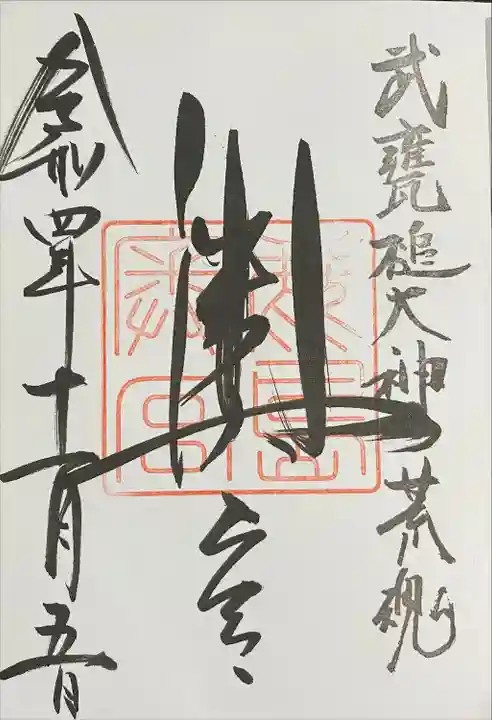 武甕槌大神 荒魂
奥宮
令和四年十一月五日